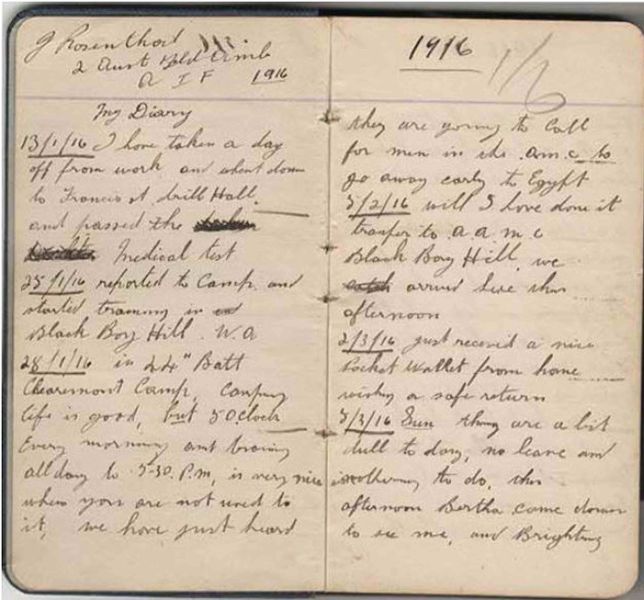 J Rosenthal
2 Aust Fld Amb
A I F 1916
My Diary
13/1/16 I have taken a day
off from work and went down
to Francis st drill Hall.
and passed the
Medical test
25/1/16 reported to Camp. and
started training in
Black Boy Hill. W.A
28/1/16 in 44" Batt
Claremont Camp, Camping
life is good, but 5 OClock
Every morning and traing
all day to 5-30 P.M, is very nice
when you are not used to
it, we have just heard
1916
they are going to Call
for men in the A.M.C to
go away early to Egypt
5/2/16 will I have done it
trasfer to A.A.M.C
Black Boy Hill. we
arrived here this
afternoon
2/3/16 just received a nice
Pocket Wallet from home
wishing a safe return
5/3/16 Sun thing are a bit
dull to day, no leave and
nothing to do, this
afternoon Bertha came down
to see me, and Brighting